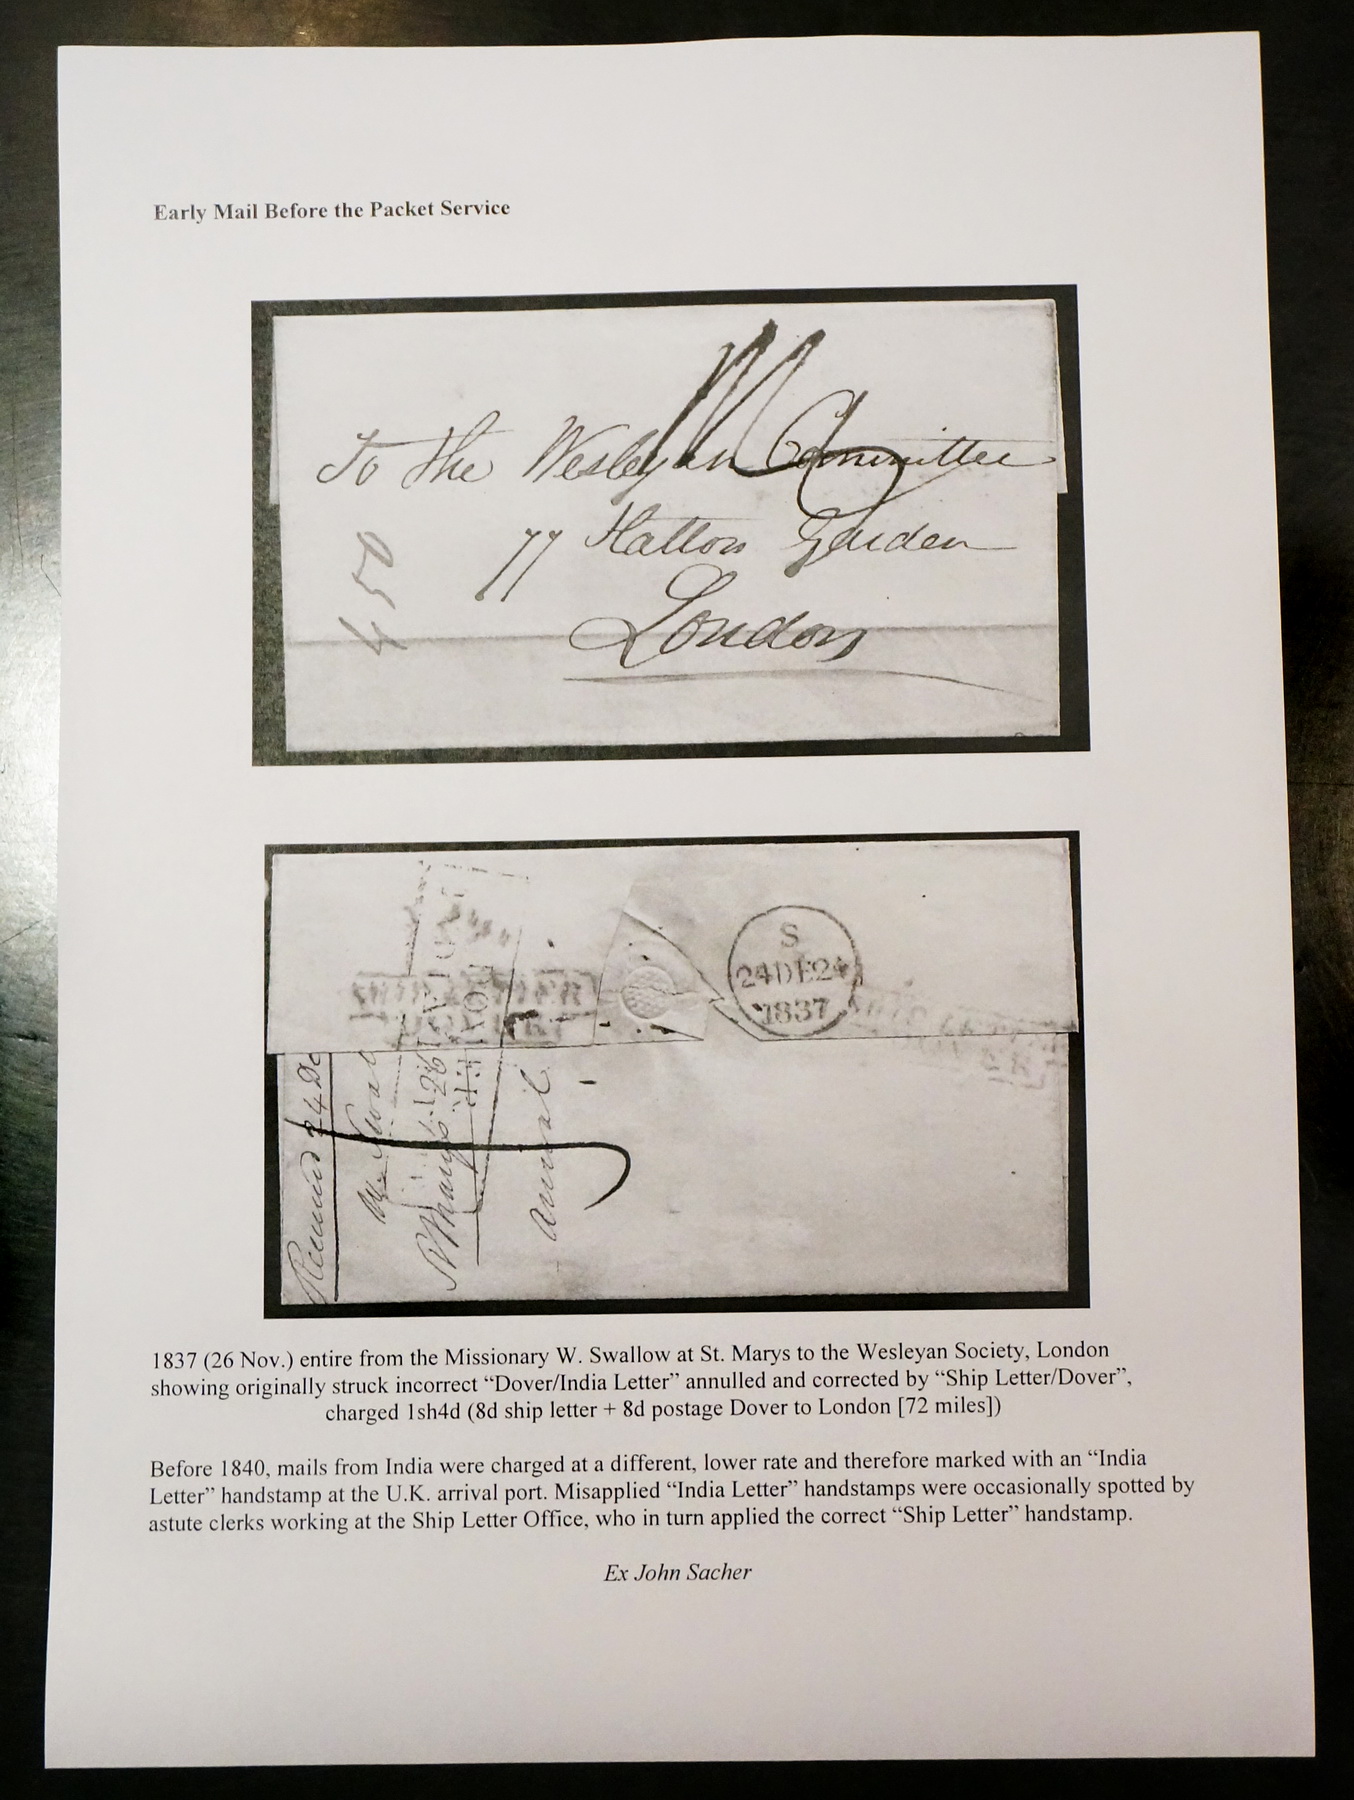 Early Mail Before the Packet Service
To the Wesleyan Committee
77 Hatton Garden
London
450
S
24DE24
1837
24 De
1837 (26 Nov.) entire from the Missionary W. Swallow at St. Marys to the Wesleyan Society, London
showing originally struck incorrect “Dover/India Letter” annulled and corrected by “Ship Letter/Dover”,
charged 1sh4d (8d ship letter + 8d postage Dover to London [72 miles])
Before 1840, mails from India were charged at a different, lower rate and therefore marked with an “India
Letter” handstamp at the U.K. arrival port. Misapplied “India Letter” handstamps were occasionally spotted by
astute clerks working at the Ship Letter Office, who in turn applied the correct “Ship Letter” handstamp.
Ex John Sacher